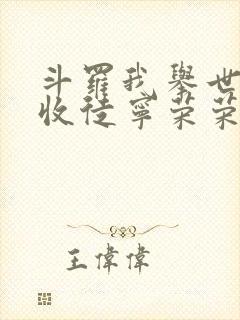 斗羅我舉世
收徒寧榮榮
王偉偉